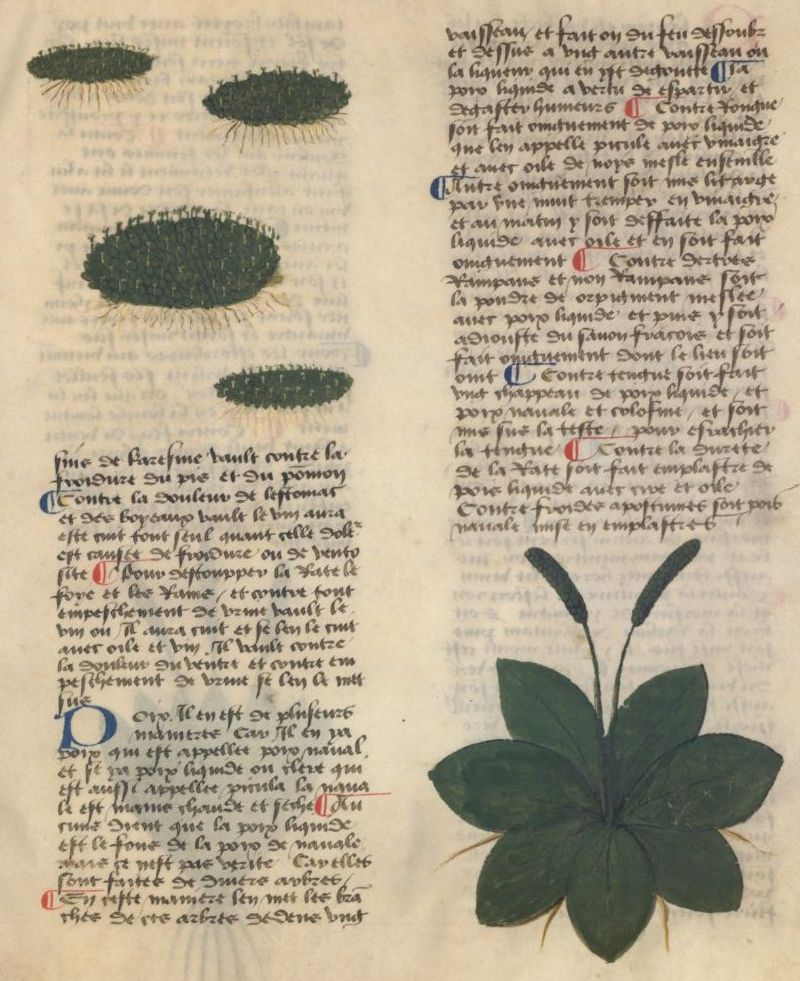 sins de karesme vault contre la
froidure du pis et du pomon
Contre la douleur de lestomac
et des boyeaux vault le vin aura
este cuit tout seul quant celle dole
est causee de froidure ou de vento
site Pour destoupper la Rate le
foye et les Rains et contre tout
empeschement de vrine vault le
vin ou Il aura cuit et se len le cuit
avec oile et vin Il vault contre
la douleur du ventre et contre em
peschement de vrine se len le met
sus
Poix. Il en est de plusieurs
manieres Car Il en ya
poix qui est appellee poix naual
et se ya poix liquide ou clere qui
est aussi appellee picula la naua
le est mains chaude et seche Au
cuns dient que la poix liquide
est le fons de la poix de nauale
mais ce nest pas verite Car elles
sont faites de diuers arbres
En ceste maniere len met les bra
ches de ces arbres dedens vng
vaisseau et fait on du feu dessoubz
et dessus a vng autre vaisseau ou
la liqueur qui en yst degoutte La
poix liquide a vertu de espartir et
degaster humeurs Contre Rongne
soit fait oinguement de poix liquide
que len appelle picule auec vinaigre
et auec oile de noys mesle ensemble
Autre oinguement soit mis litarge
par vne nuut tremper en vinaigre
et au matin y soit deffaite la poix
liquide auec oile et en soit fait
oinguement Contre dertres
Rampans et non Rampans soit
la poudre de orpigment meslee
auec poix liquide et puis y soit
adiouste du sauon francois et soit
fait oinguement dont le lieu soit
oint Contre tengne soit fait
vng chappeau de poix liquide et
poix nauale et colofine et soit
mis sus la teste pour esrachier
la teingne Contre la durete
de la Rate soit fait emplastre de
pois liquide auec cire et oile
Contre froides apostumes soit pois
nauale mise en emplastres